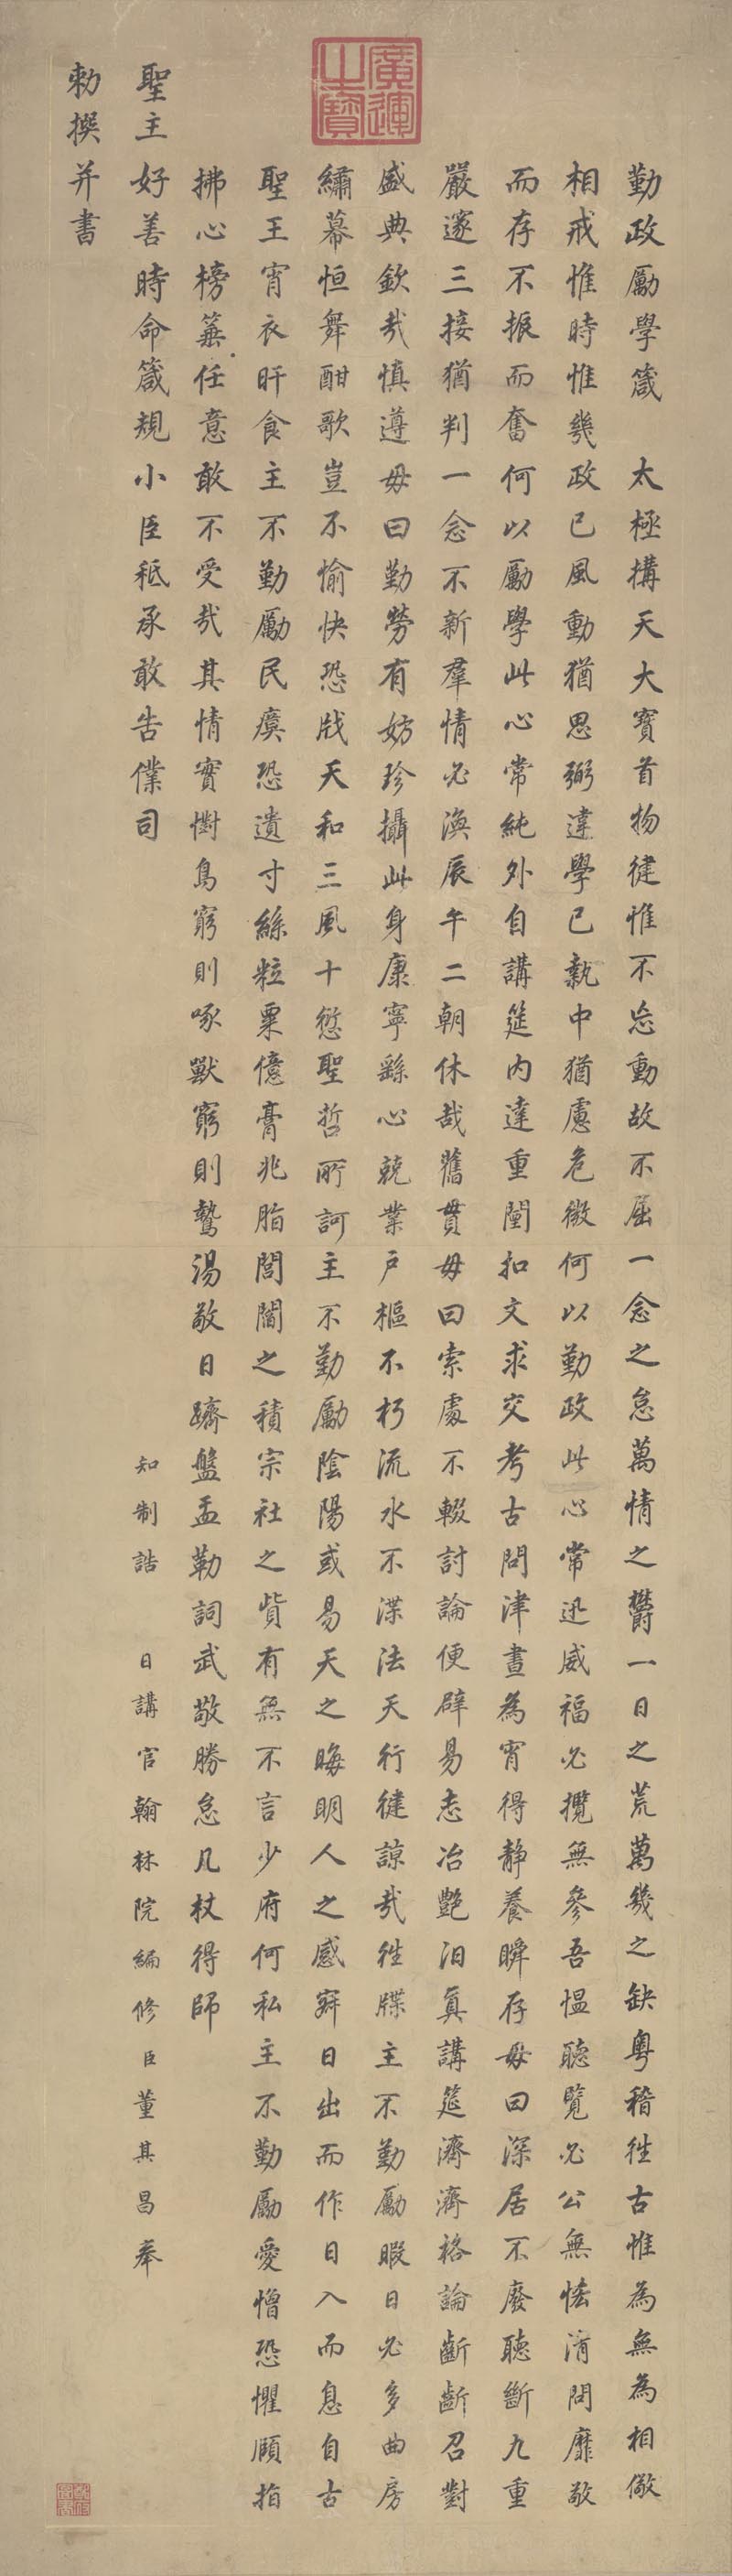 廣運之寶
勤政勵學箴 太極構天大寶首物健惟不忘動故不屈一念之怠萬情之鬱一日之荒萬幾之缺粵稽往古惟為無為相儆
相戒惟時惟幾政已風動猶思弼違學已執中猶慮危微何以勤政此心常迅威福必攬無參吾慍聽覽必公無恡清問靡敢
而存不振而奮何以勵學此心常純外自講筵內達重闈扣文求交考古問津晝為宵得靜養瞬存毋曰深居不廢聽斷九重
嚴邃三接猶判一念不新羣情必渙辰午二朝休哉舊貫毋曰索處不輟討論便辟易志冶艷汩真講筵濟濟格論齗齗召對
盛典欽哉慎遵毋曰勤勞有妨珍攝此身康寧繇心兢業戶樞不朽流水不渫法天行健諒哉往牒主不勤勵暇日必多曲房
繡幕恒舞酣歌豈不愉快恐戕天和三風十愆聖哲所訶主不勤勵陰陽或易天之晦明人之感寤日出而作日入而息自古
聖王宵衣旰食主不勤勵民瘼恐遺寸絲粒粟億膏兆脂閭閻之積宗社之貲有無不言少府何私主不勤勵愛憎恐懼頤指
拂心榜箠任意敢不受哉其情實懟鳥窮則啄獸窮則鷙湯敬日躋盤盂勒詞武敬勝怠几杖得師
聖主好善時命箴規小臣秪承敢告僕司 知制誥 日講官翰林院編修臣董其昌奉
勅撰并書